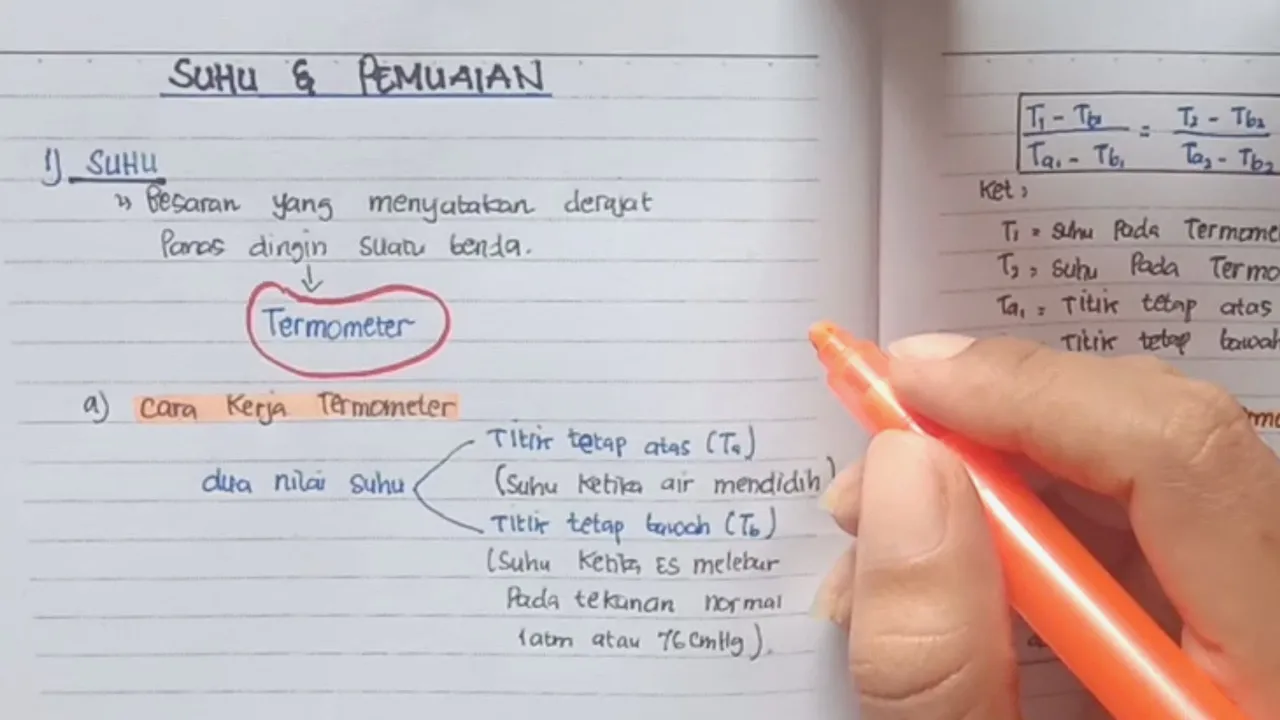 SUHU & PEMUAIAN
1) SUHU
↳ Besaran yang menyatakan derajat
Panas dingin suatu benda.
↓
Termometer
a) Cara Kerja Termometer
dua nilai suhu
Titik tetap atas (Ta)
(Suhu ketika air mendidih)
Titik tetap bawah (Tb)
(Suhu ketika ES melebur
Pada tekanan normal
1atm atau 76 CmHg).
T1 - Tb1 / Ta1 - Tb1 = T2 - Tb2 / Ta2 - Tb2
Ket:
T1 = suhu Pada Termome
T2 = Suhu Pada Termo
Ta1 = Titik tetap atas
Titik tetap bawah